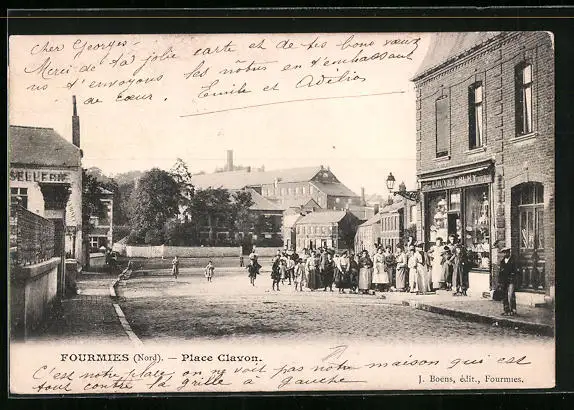 Cher Georges
Merci de ta jolie carte et de tes bons vœux
ns t'envoyons les nôtres en t'embrassant
de cœur. Emile et Adélias
SELLERIE
LOUVET-HURT
FOURMIES (Nord). — Place Clavon.
C'est notre place, on ne voit pas notre maison qui est
tout contre la grille à gauche
J. Boens, édit., Fourmies.